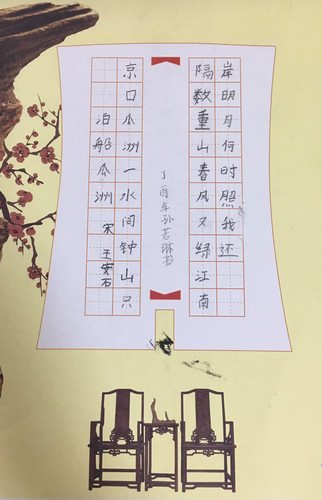 泊船瓜洲 宋 王安石
京口瓜洲一水间钟山只
隔数重山春风又绿江南
岸明月何时照我还
丁酉年孙若琳书